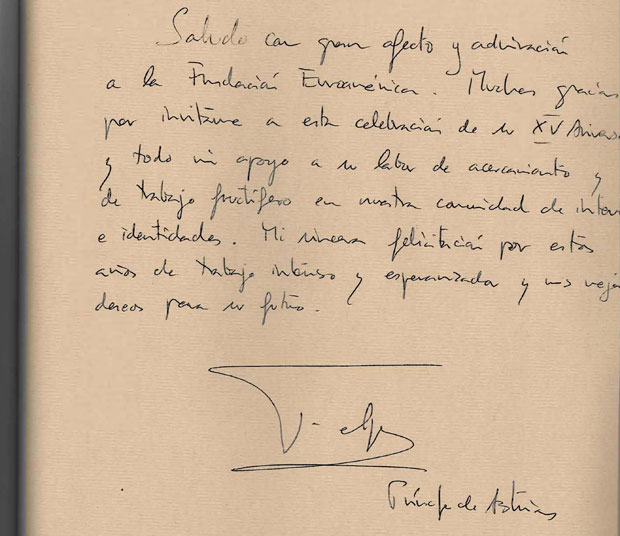 Saludo con gran afecto y admiración
a la Fundación Euroamérica. Muchas gracias
por invitarme a esta celebración de su XV Anivers
y todo mi apoyo a su labor de acercamiento y
de trabajo fructífero en nuestra comunidad de inter
e identidades. Mi sincera felicitación por estos
años de trabajo intenso y esperanzador y mis mejo
deseos para su futuro.
Felipe
Príncipe de Asturias